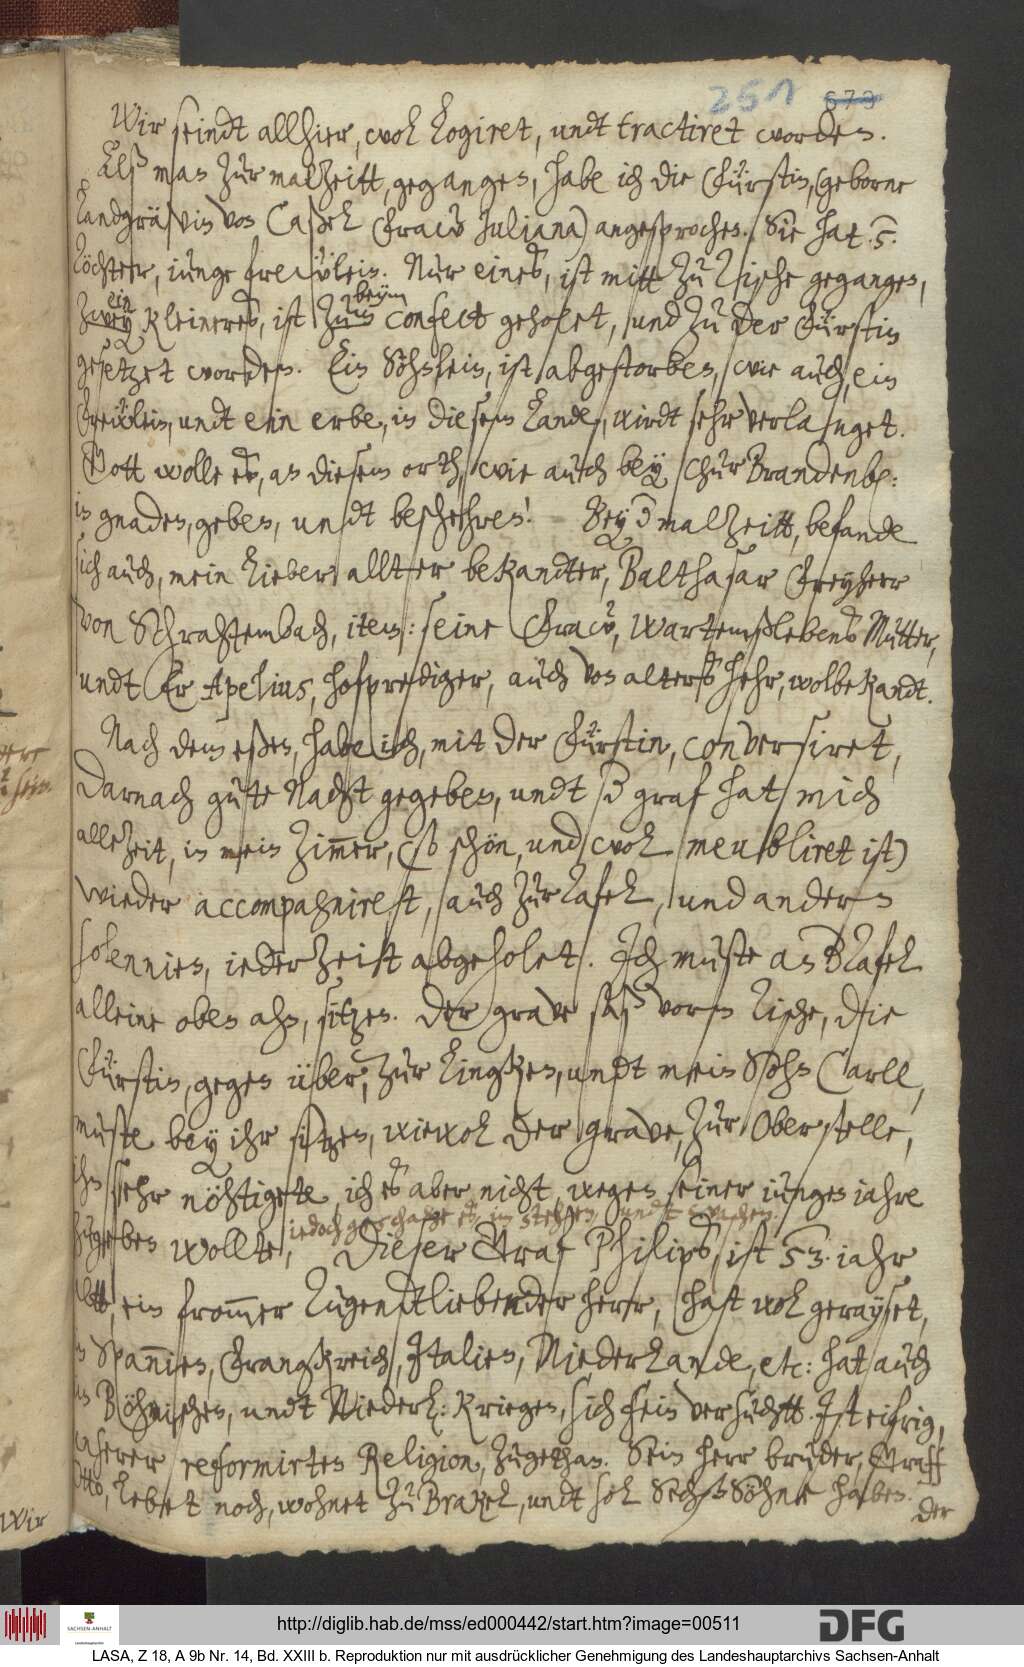 251 673
Wir seindt allhier, wol logiret, undt tractiret worden.
Alß man zur malzeitt, gegangen, habe ich die Fürstin, (geborne
Landgräfin von Caßel Fraw Juliana) angesprochen. Sie hat .5.
Töchter, iunge frewlein. Nur eines, ist mitt zu Tische gegangen,
ein kleineres, ist beym confect geholet, und zu der Fürstin
gesetzet worden. Ein Söhnlein, ist abgestorben, wie auch, ein
Frewlein, undt ein erbe, in diesem Lande, wirdt sehr verlanget.
Gott wolle es, an diesem orth, wie auch bey Chur Brandenb:
in gnaden, geben, undt beschehren! Bey der malzeitt, befande
sich auch, mein lieber allter bekandter, Balthasar Freyherr
von Schrahtembach, item: seine Fraw, Wartemßlebens Mutter,
undt Er Apelius, hofprediger, auch von alters hehr, wolbekandt.
Nach dem eßen, habe ich, mit der Fürstin, conversiret,
Darnach gute Nacht gegeben, undt der graf hat mich
allezeit, in mein Zimmer, (so schön, und wol meubliret ist)
wieder accompagniret, auch zur Tafel, und andern
solennien, iederzeit abgeholet. Ich muste an der Tafel
alleine oben ahn, sitzen. Der grave saß vorm Tische, die
Fürstin, gegen über, zur Lincken, undt mein Sohn Carll,
muste bey ihr sitzen, wiewol der grave, zur Oberstelle,
ihn sehr nöhtigete ich es aber nicht, wegen seiner iungen jahre
zugeben wollte, iedoch geschahe es, im stehen, undt waschen.
Dieser Graf Philips, ist 53. iahr
allt, ein frommer Tugendtliebender herr, hatt wol gerayset,
in Spannien, Franckreich, Italien, Niederlande, etc: hat auch
in Böhmischen, undt Niederl: kriegen, sich fein versuchtt. Ist eifrig,
unserer reformirten Religion, zugethan. Sein herr bruder, Graff
Otto, lebet noch, wohnet zu Brakel, undt sol Sechß Söhne haben.
der
Wir
http://diglib.hab.de/mss/ed000442/start.htm?image=00511
SACHSEN-ANHALT
DFG
LASA, Z 18, A 9b Nr. 14, Bd. XXIII b. Reproduktion nur mit ausdrücklicher Genehmigung des Landeshauptarchivs Sachsen-Anhalt